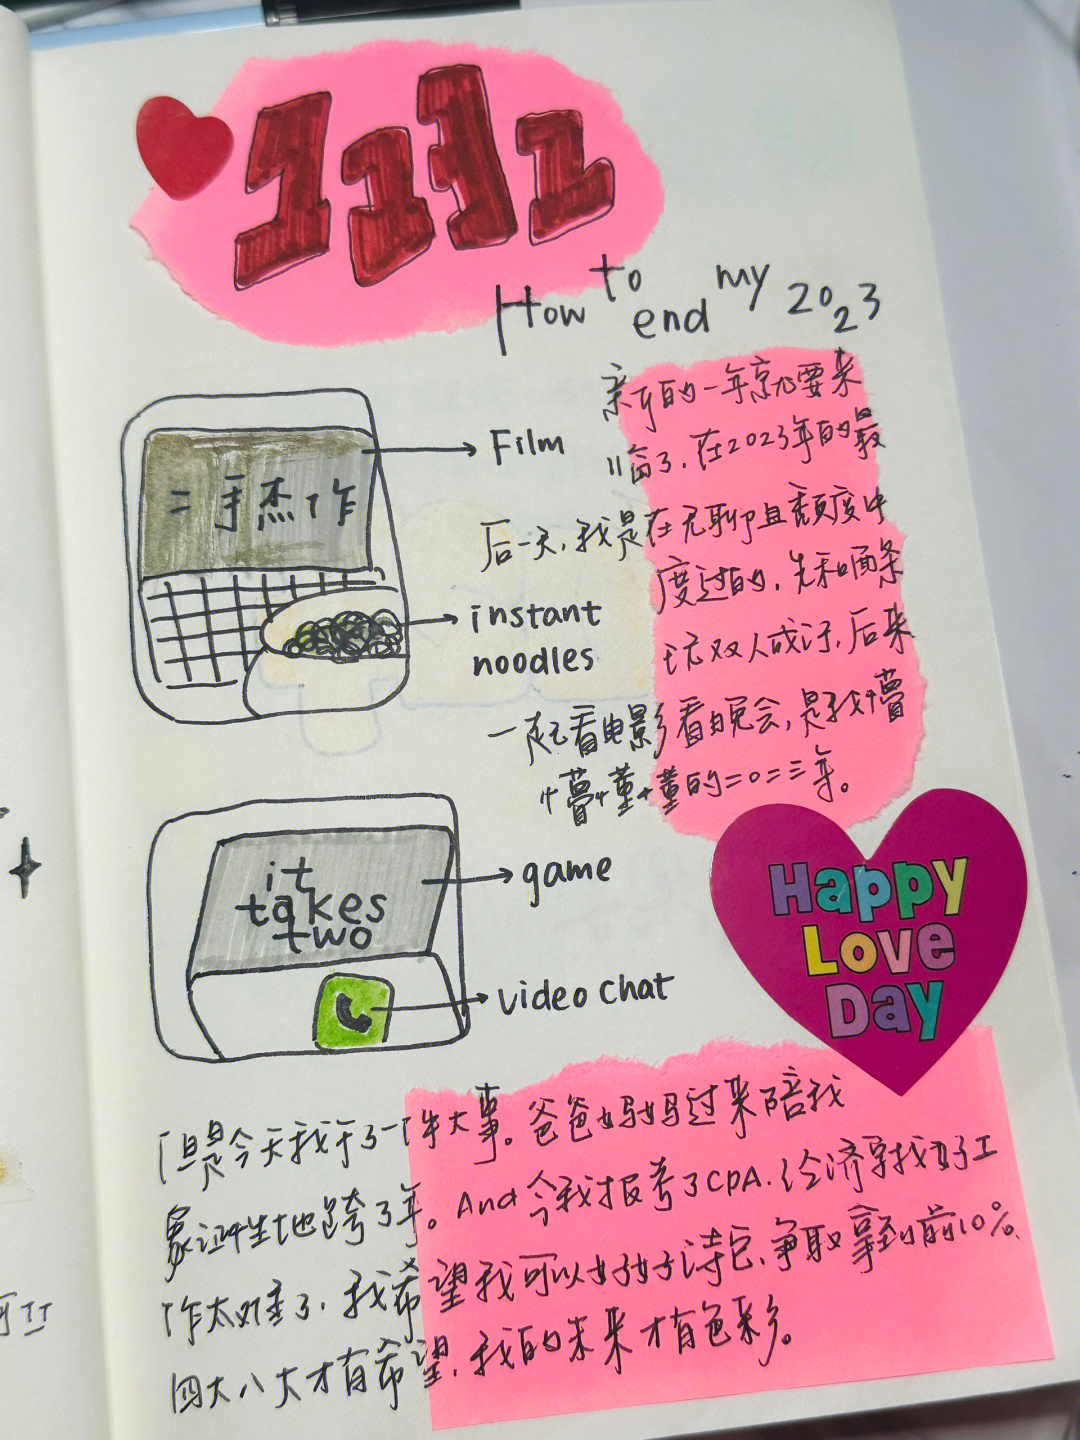 1231
How to end my 2023
新的一年就要来
临了,在2023年的最
后一天,我是在无聊且颓废中
度过的,先和面条
玩双人成行,后来
一起看电影看晚会,是我懵
懵懂懂的二〇二三年。
Film
二手杰作
instant
noodles
game
it
takes
two
video chat
Happy
Love
Day
但是今天我干了一件大事。爸爸妈妈过来陪我
象征性地跨了年。And 今我报考了CPA.经济学找好工
作太难了,我希望我可以好好读它、争取拿到前10%、
四大八大才有希望,我的未来才有色彩。